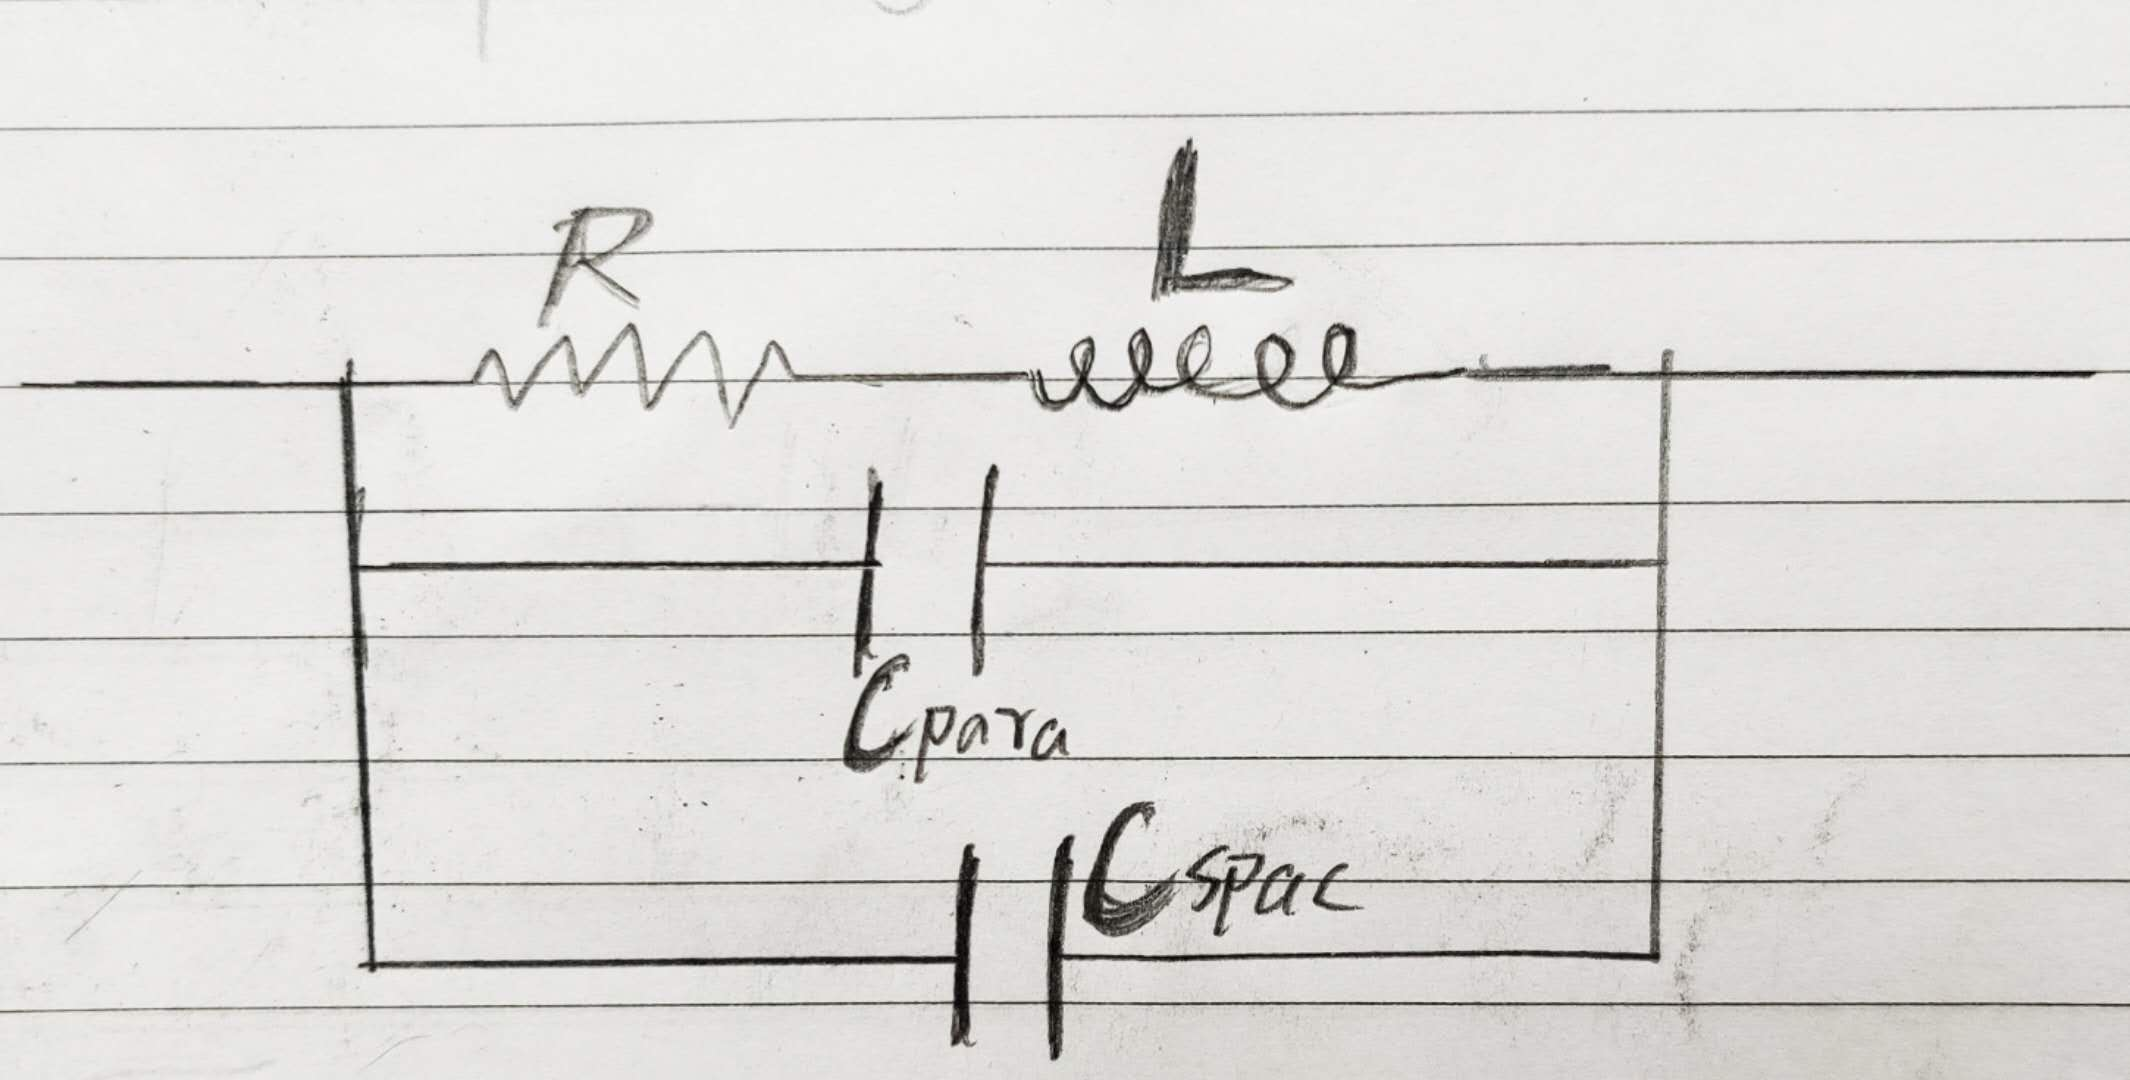 R
L
Cpara
Cspac